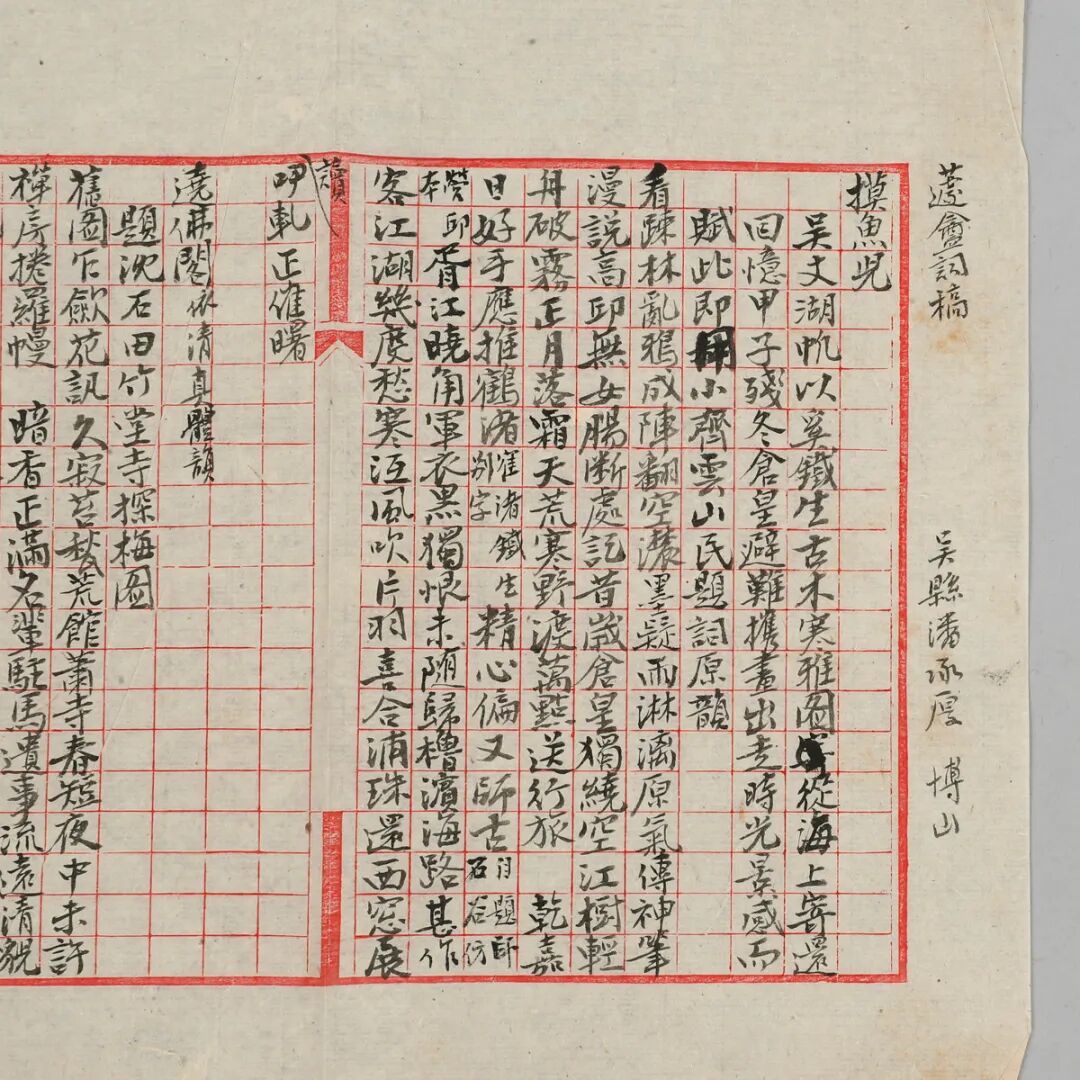 蘧盦詞稿
吳縣潘承厚 博山
摸魚兒
吳丈湖帆以奚鐵生古木寒雅圖 從海上寄還
回憶甲子殘冬倉皇避難攜畫出走時光景感而
賦此即用小齊雲山民題詞原韻
看疎林亂鴉成陣翻空濃墨疑雨淋漓原氣傳神筆
漫說高邱無女腸斷處記昔歲倉皇獨繞空江樹輕
舟破霧正月落霜天荒寒野渡萬點送行旅 乾嘉
日好手應推鶴渚 鶴渚鐵生別字 精心偏又師古 自題師石谷仿
營邱本 胥江曉角軍衣黑獨恨未隨歸櫓濱海路甚作
客江湖幾度愁寒沍風吹片羽喜合浦珠還西窗展
讀
呷軋正催曙
遶佛閣 依清真體韻
題沈石田竹堂寺探梅圖
舊圖乍歛花訊久寂苔秋荒館蕭寺春短夜中未許
禪房捲羅幔 暗香正滿名輩駐馬遺事流遠清覯